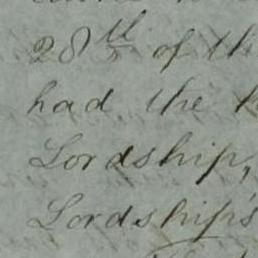 28th of th
had the
Lordship,
Lordship's